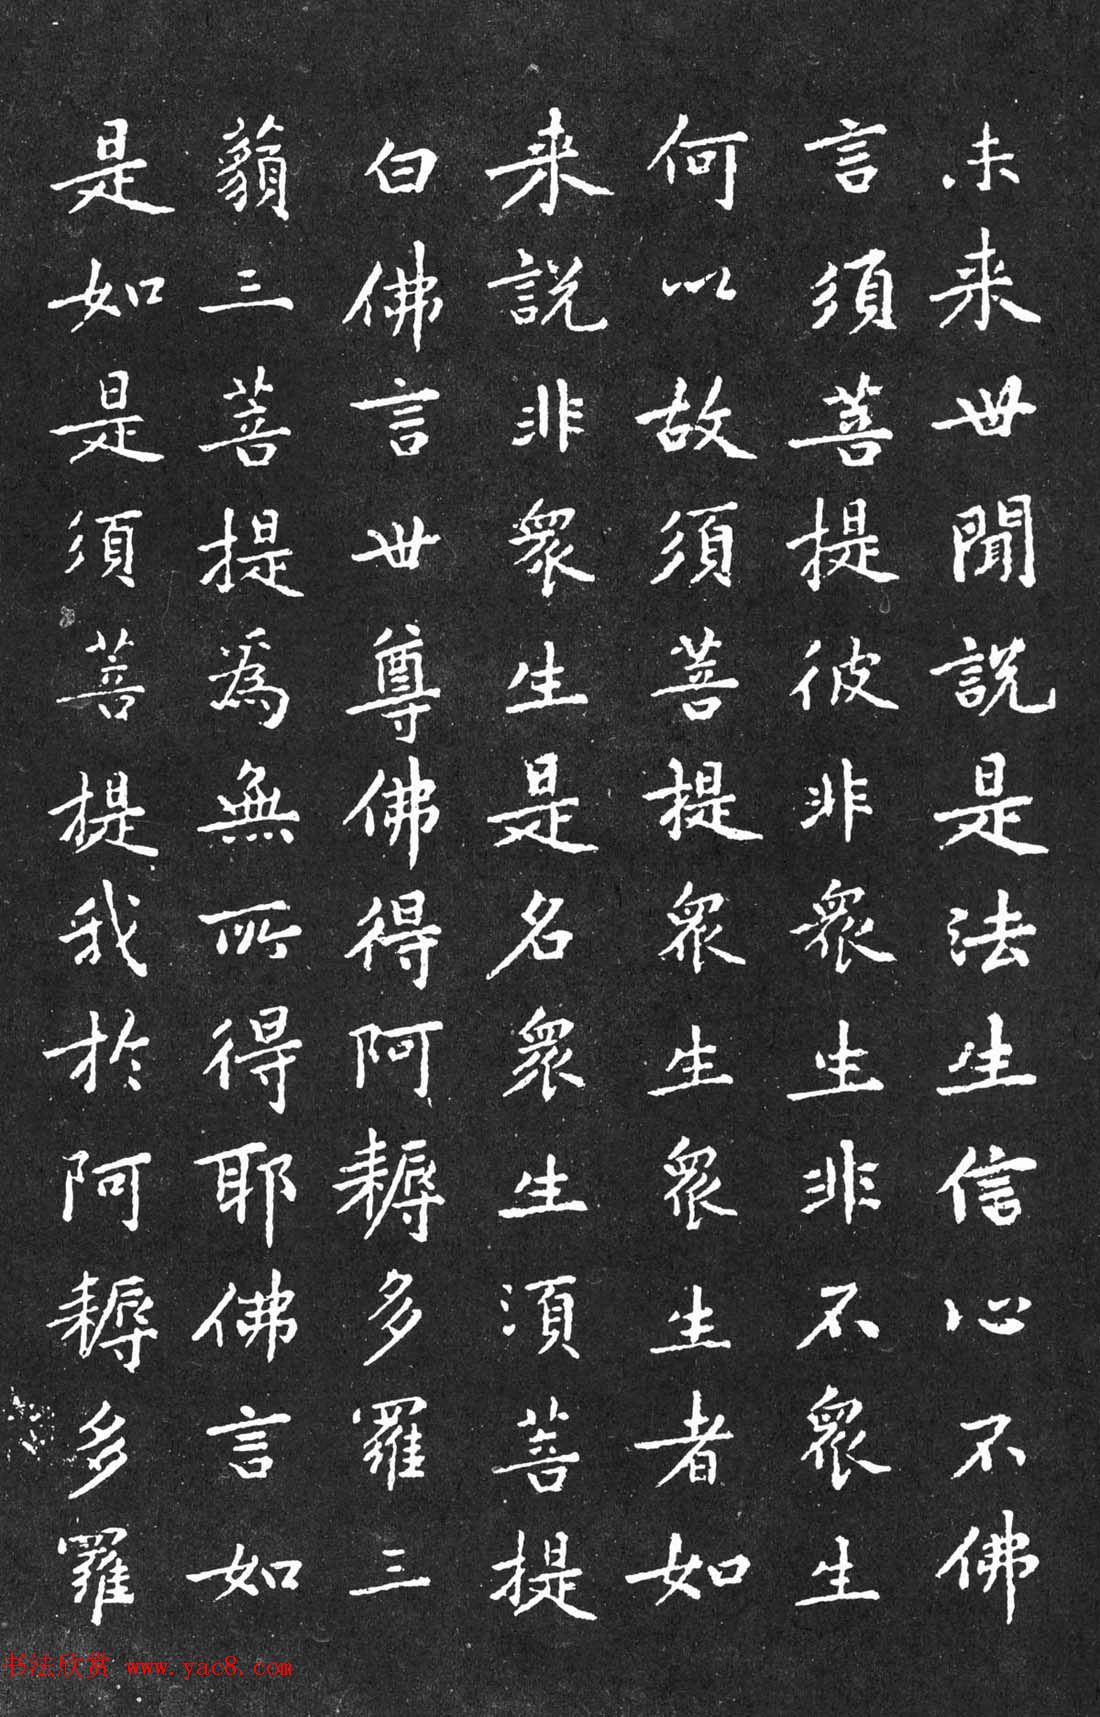 未来世聞説是法生信心不佛
言須菩提彼非衆生非不衆生
何以故須菩提衆生衆生者如
来説非衆生是名衆生須菩提
白佛言世尊佛得阿耨多羅三
藐三菩提為無所得耶佛言如
是如是須菩提我於阿耨多羅
书法欣赏 www.yac8.com